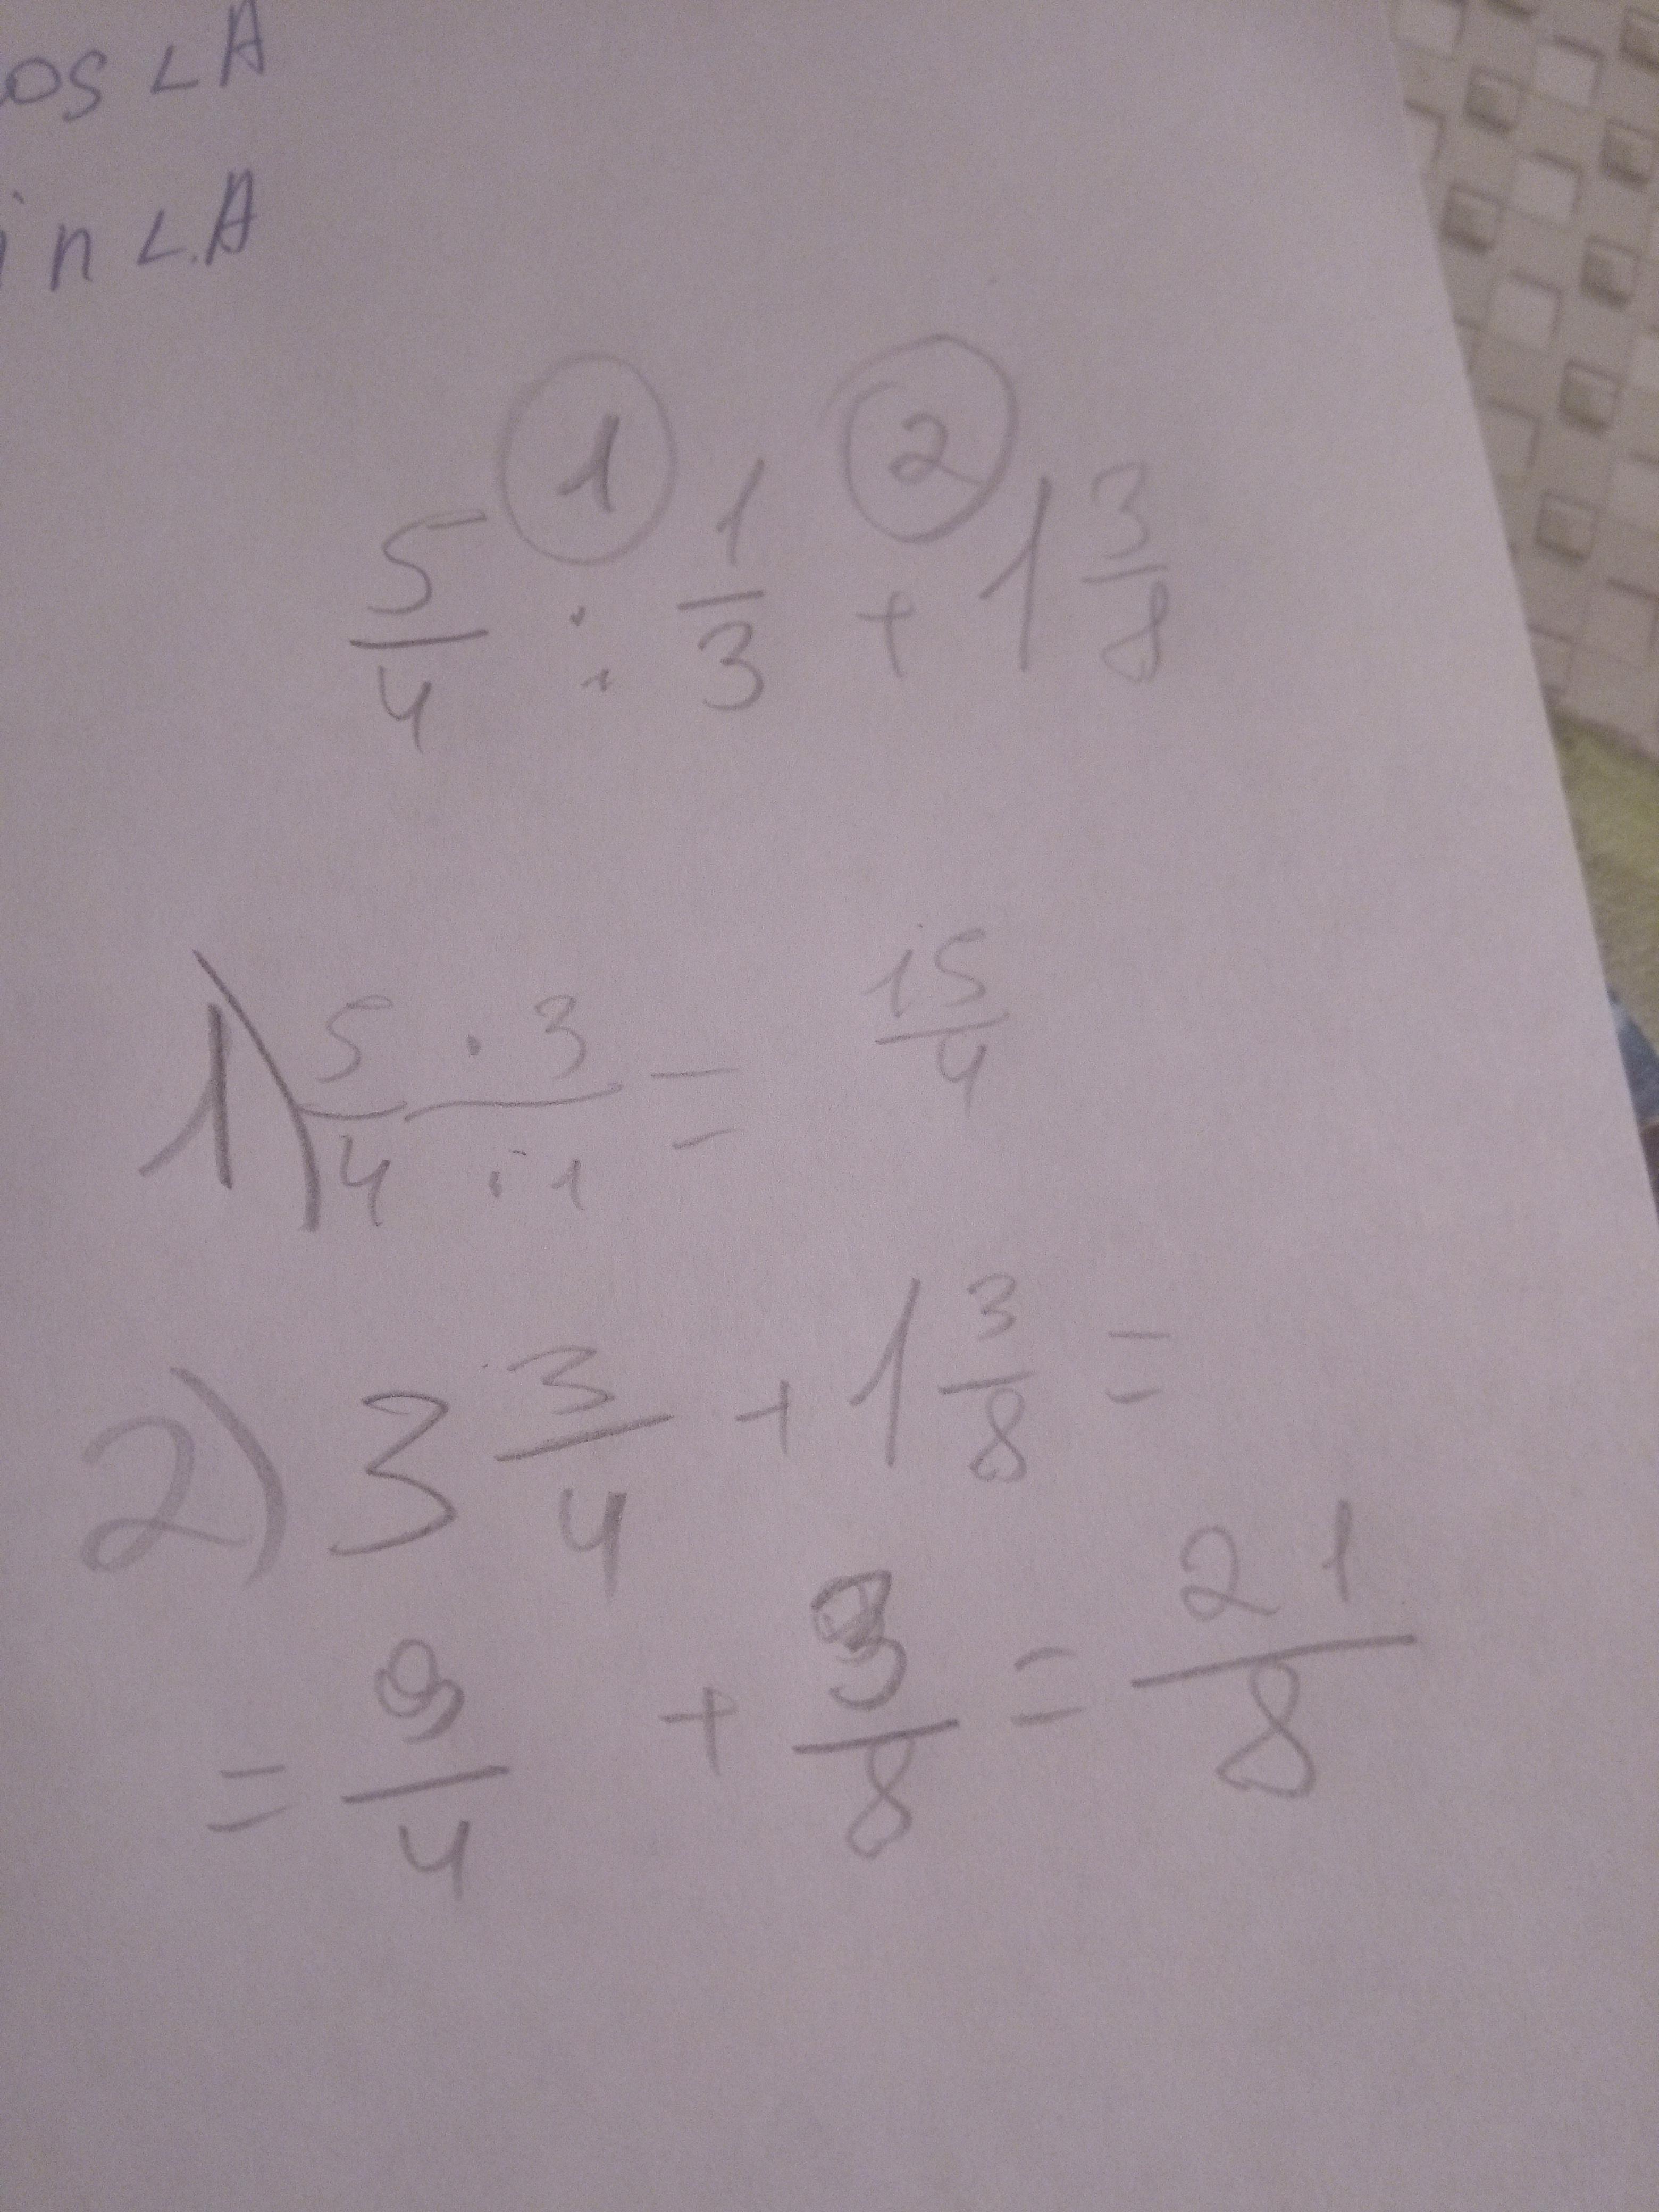 os ∠A
in ∠A
① ②
5/4 : 1/3 + 1 3/8
1) 5 · 3 / 4 · 1 = 15/4
2) 3 3/4 + 1 3/8 =
= 9/4 + 3/8 = 21/8